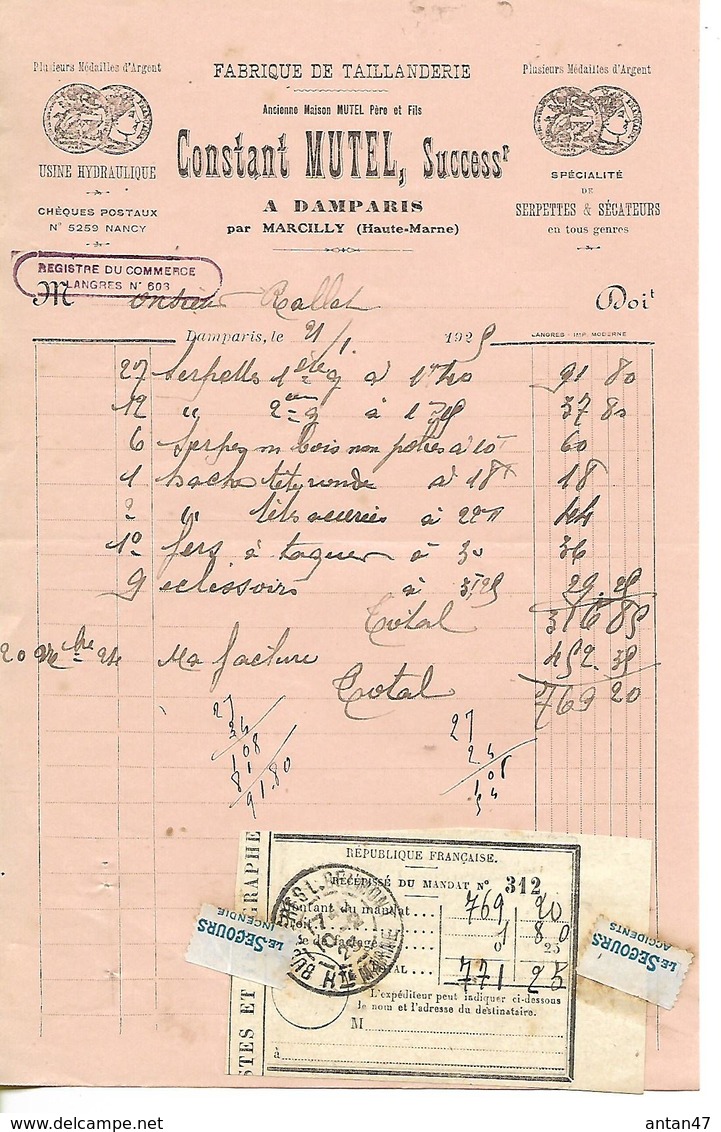 Plusieurs Médailles d'Argent
FABRIQUE DE TAILLANDERIE
Plusieurs Médailles d'Argent
Ancienne Maison MUTEL Père et Fils
Constant MUTEL, Success^r
USINE HYDRAULIQUE
SPÉCIALITÉ
DE
SERPETTES & SÉCATEURS
en tous genres
A DAMPARIS
CHÈQUES POSTAUX
N° 5259 NANCY
par MARCILLY (Haute-Marne)
REGISTRE DU COMMERCE
LANGRES N° 603
Monsieur Rallet Doit
Damparis, le 21/1 1925
LANGRES - IMP. MODERNE
27 Serpettes 1 à 91 80
12 " 2 à 37 80
6 Serpes m bois non polies à 10 60
1 hache tête ronde à 18 18
2 " à 22 44
fers à taquer à 36
9 à 3,25 29.25
Total 316 85
20 24 Ma facture 452.35
Total 769 20
27
34
108
81
91.80
27
2.4
108
54
RÉPUBLIQUE FRANÇAISE.
RÉCÉPISSÉ DU MANDAT N° 312
Montant du mandat 769 20
1 80
0 25
TOTAL 771 25
L'expéditeur peut indiquer ci-dessous
le nom et l'adresse du destinataire.
M
à
Hte MARNE
LE SECOURS
INCENDIE
LE SECOURS
ACCIDENTS
antan47